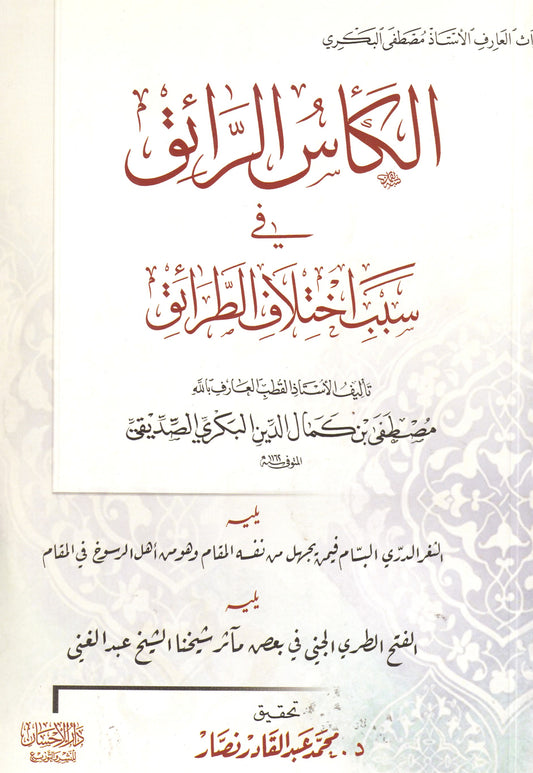 اث العارف الأستاذ مصطفى البكري
الكأس الرائق
في
سبب اختلاف الطرائق
تأليف الأستاذ القطب العارف بالله
مصطفى بن كمال الدين البكري الصديقي
المتوفى ١١٦٢ هـ
يليه
الثغر الدري البسام فيمن يجهل من نفسه المقام وهو من أهل الرسوخ في المقام
يليه
الفتح الطري الجني في بعض مآثر شيخنا الشيخ عبد الغني
تحقيق
د. محمد عبد القادر نصار
دار الإحسان
للنشر والتوزيع